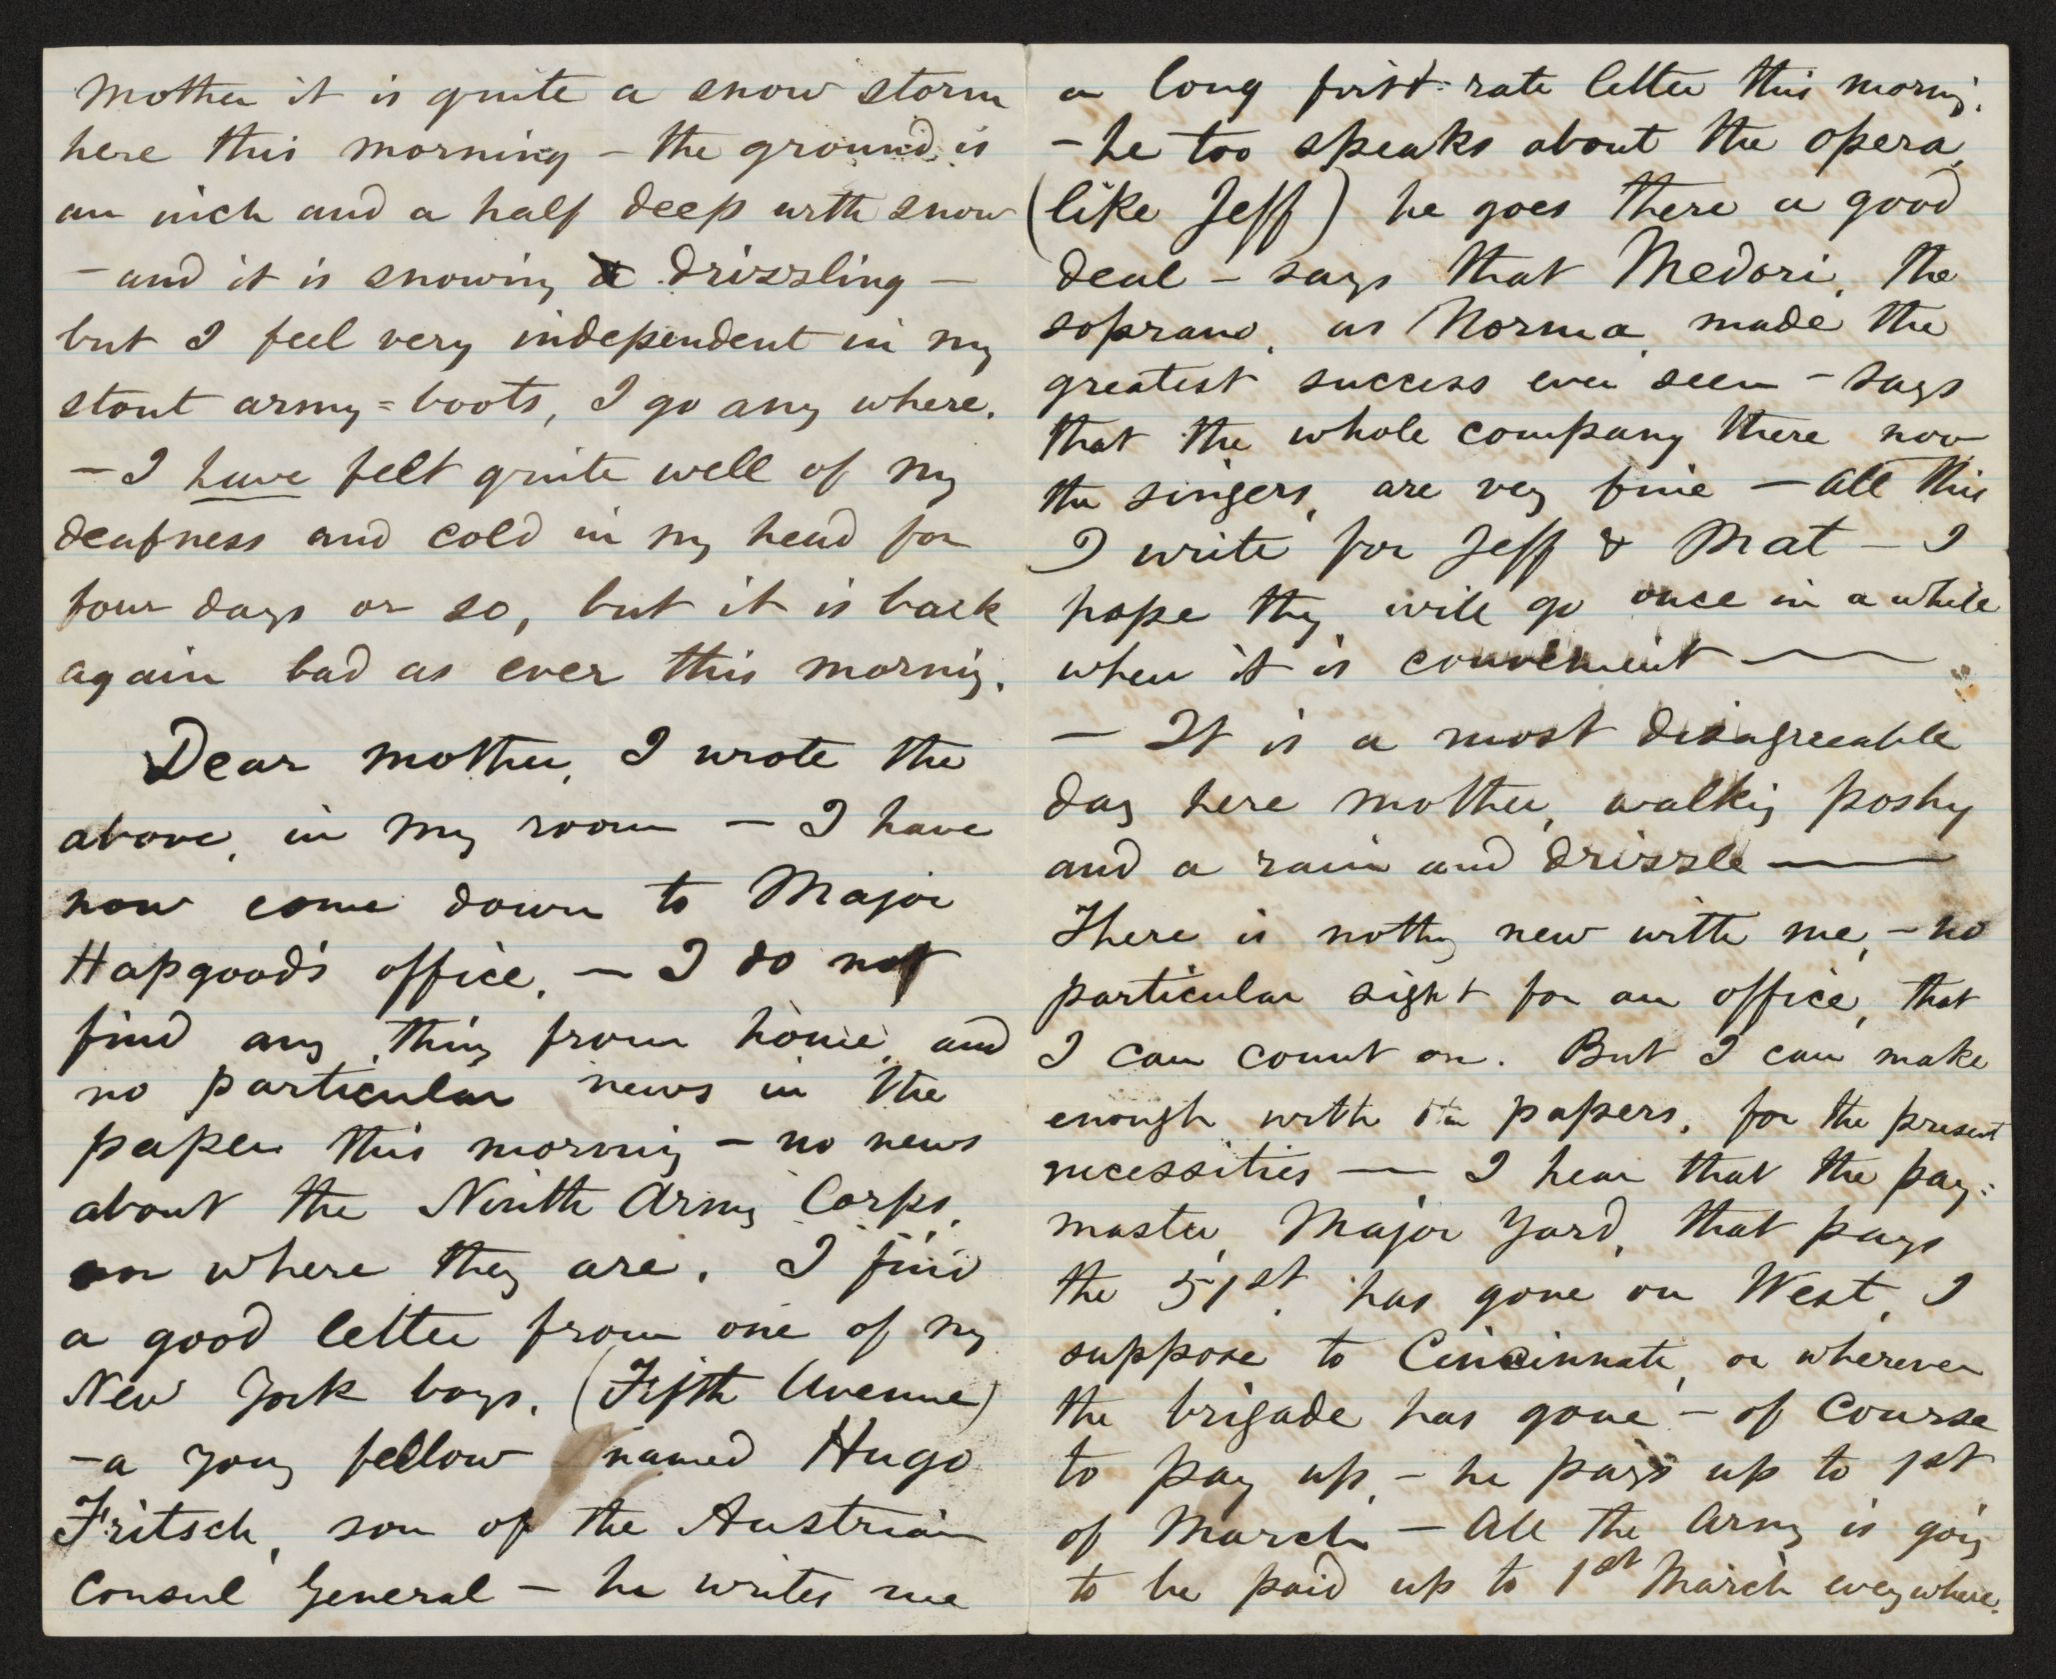 Mother it is quite a snow storm
here this morning – the ground is
an inch and a half deep with snow
– and it is snowing & drizzling –
but I feel very independent in my
stout army=boots, I go any where.
– I have felt quite well of my
deafness and cold in my head for
four days or so, but it is back
again bad as ever this morning.
Dear mother, I wrote the
above, in my room – I have
now come down to Major
Hapgood's office, – I do not
find any thing from home, and
no particular news in the
paper this morning – no news
about the Ninth Army Corps,
or where they are. I find
a good letter from one of my
New York boys, (Fifth Avenue)
– a young fellow named Hugo
Fritsch, son of the Austrian
Consul General – he writes me
a long first-rate letter this morning.
– he too speaks about the opera,
(like Jeff) he goes there a good
deal – says that Medori, the
soprano, as Norma, made the
greatest success ever seen – says
that the whole company there now
the singers, are very fine – All this
I write for Jeff & Mat – I
hope they will go once in a while
when it is convenient —
– It is a most disagreeable
day here mother, walking poshy
and a rain and drizzle —
There is nothing new with me, – no
particular sight for an office, that
I can count on. But I can make
enough with the papers, for the present
necessities — I hear that the pay:
master, Major Yard, that pays
the 51st, has gone on West, I
suppose to Cincinnati, or wherever
the brigade has gone – of course
to pay up, – he pays up to 1st
of March – All the Army is going
to be paid up to 1st March everywhere.